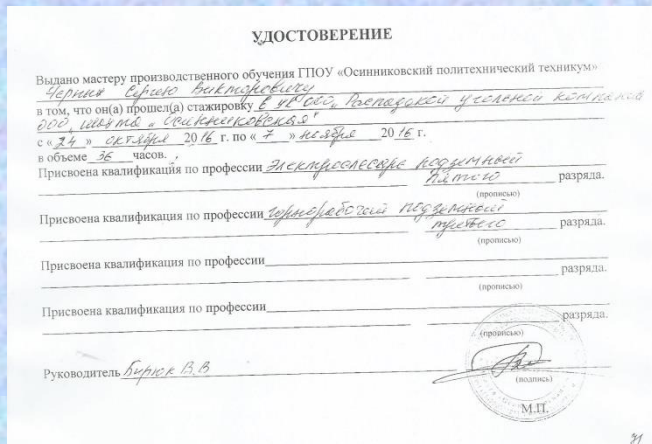 УДОСТОВЕРЕНИЕ
Выдано мастеру производственного обучения ГПОУ «Осинниковский политехнический техникум»
Сергею Викторовичу
в том, что он(а) прошел(а) стажировку в Распадской угольной компании
ООО, шахта "Осинниковская"
с « 24 » октября 2016 г. по « 7 » ноября 2016 г.
в объеме 36 часов.
Присвоена квалификация по профессии электрослесарь подземный
пятого разряда.
(прописью)
Присвоена квалификация по профессии горнорабочий подземный
третьего разряда.
(прописью)
Присвоена квалификация по профессии
разряда.
(прописью)
Присвоена квалификация по профессии
разряда.
(прописью)
Руководитель Бирюк В.В
(подпись)
М.П.